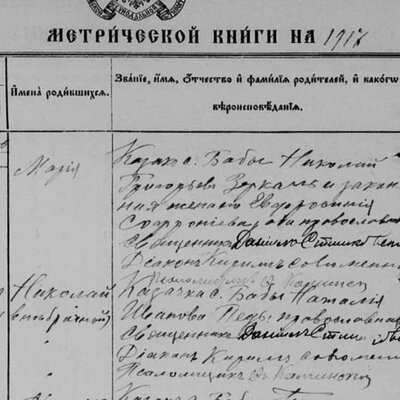 МЕТРИ́ЧЕСКОЙ КНИ́ГИ НА 1917
И҆мена̀ роди́вшихся.
Зва́нїе, и҆́мя, ѻ҆́тчество и҆ фами́лїя роди́телей, и҆ како́гѡ
вѣроисповѣ́данїя.
Марія
Казак с. Бабы Николай
Григорьев Зеркаль и закон
ная жена его Евфросинія
Софроніева, оба православн
Священник Даніил
Діакон Кирилл
Псаломщик
Николай
(внебрачной)
Казачка с. Бабы Наталія
Иванова православная
Священник Даніил
Діакон Кирилл
Псаломщик